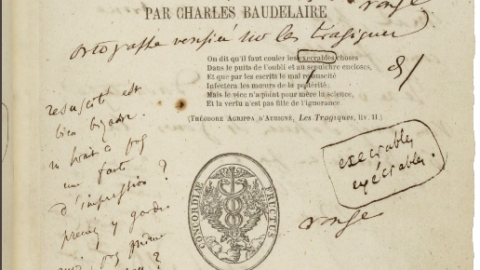 PAR CHARLES BAUDELAIRE
rouge
ortographe versifié sur les tragiques
On dit qu'il faut couler les execrables choses
Dans le puits de l'oubli et au sepulchre encloses,
Et que par les escrits le mal resuscité
Infectera les mœurs de la postérité;
Mais le vice n'a point pour mère la science,
Et la vertu n'est pas fille de l'ignorance
(THÉODORE AGRIPPA D'AUBIGNÉ, Les Tragiques, liv. II.)
resuscité est
bien bizarre.
n'y
une faute
d'impression ?
prenez y garde
execrables
exécrables.
CONCORDIÆ FRUCTUS
rouge